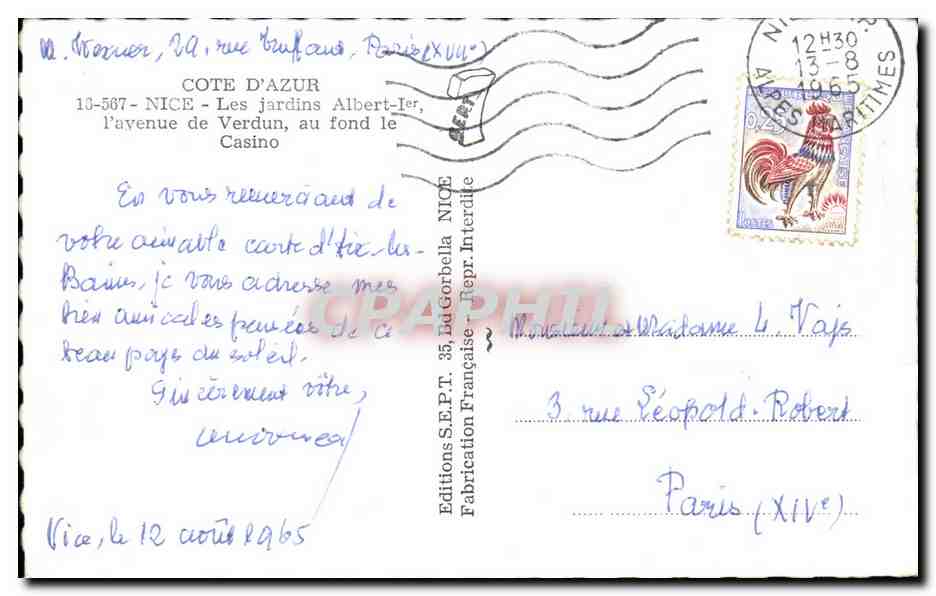 29, rue Truffaut, Paris (XVIIe)
COTE D'AZUR
16-567 - NICE - Les jardins Albert-Ier,
l'avenue de Verdun, au fond le
Casino
En vous remerciant de
votre aimable carte d'Aix-les-
Bains, je vous adresse mes
bien amicales pensées de ce
beau pays du soleil.
Sincèrement vôtre,
Nice, le 12 août 1965
Editions S.E.P.T. 35, Bd Gorbella NICE
Fabrication Française - Repr. Interdite
12H30
13-8
1965
ALPES MARITIMES
0,25
POSTES
CPAPHIL
Monsieur et Madame L. Vajs
3 rue Léopold-Robert
Paris (XIVe)